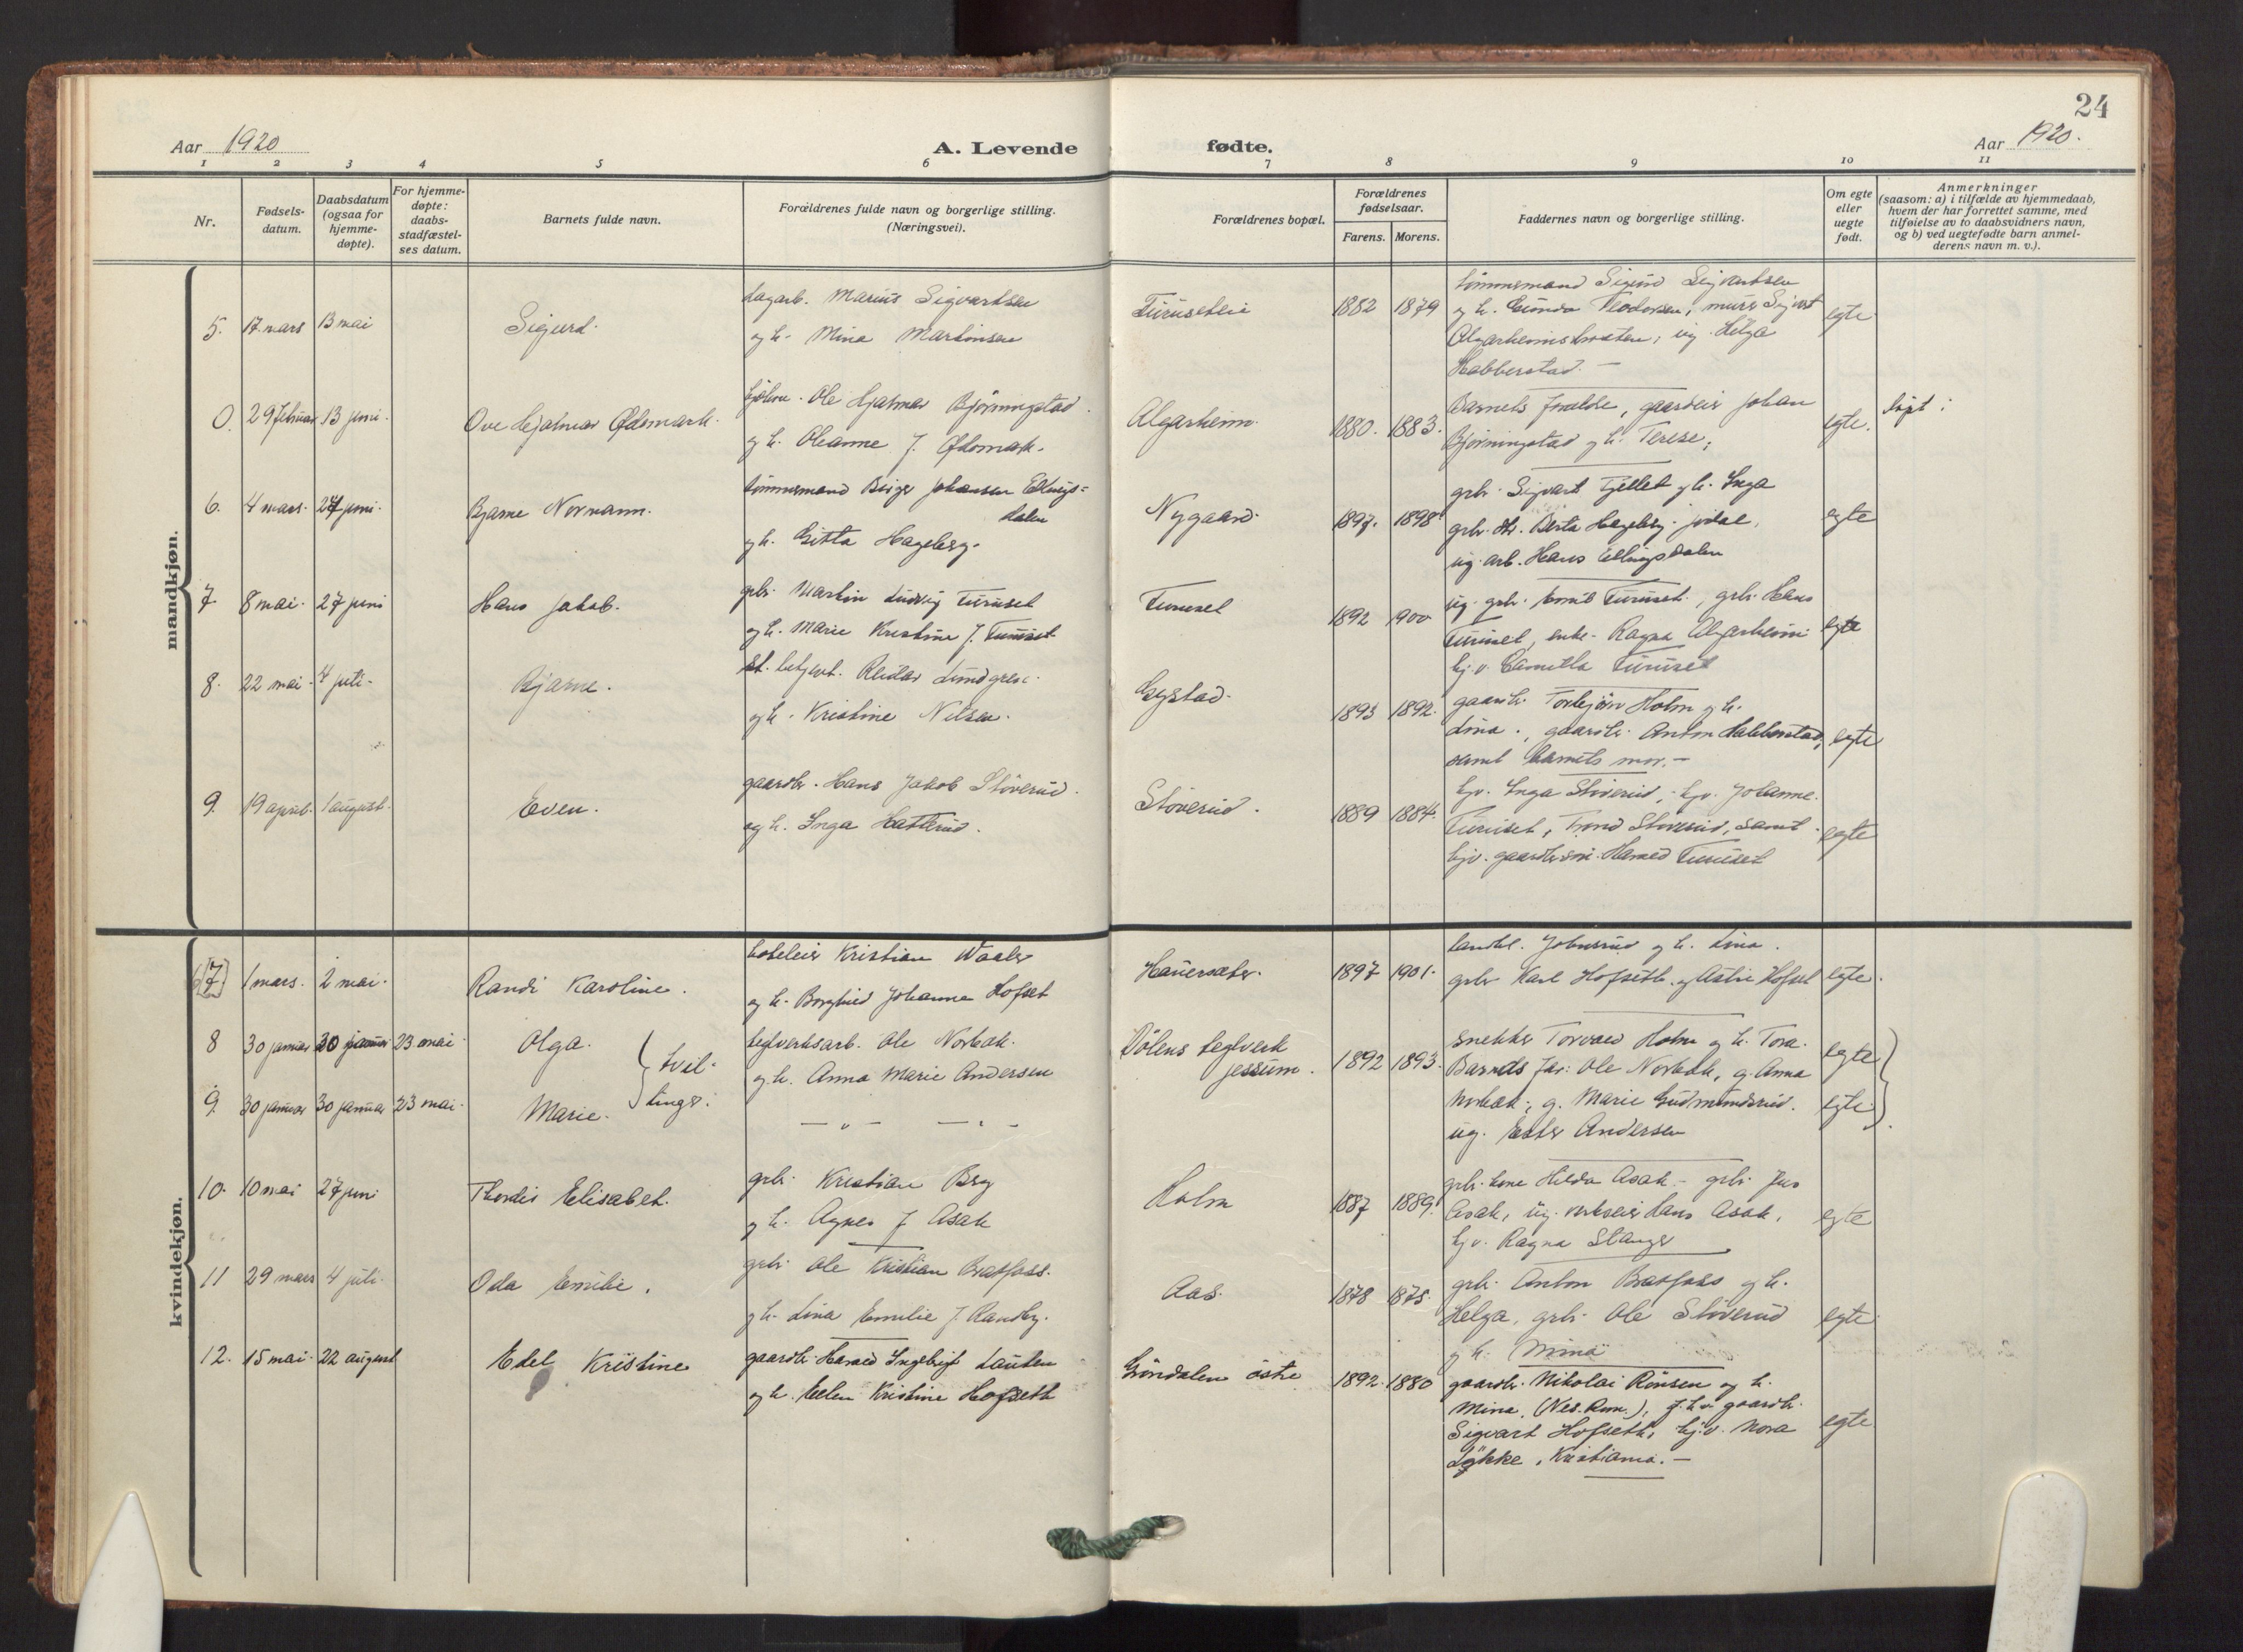 24
Aar 1920
A. Levende
fødte.
Aar 1920.
1 2 3 4 5 6 7 8 9 10 11
Nr.
Fødsels-
datum.
Daabsdatum
(ogsaa for
hjemme-
døpte).
For hjemme-
døpte:
daabs-
stadfæstel-
ses datum.
Barnets fulde navn.
Forældrenes fulde navn og borgerlige stilling.
(Næringsvei).
Forældrenes bopæl.
Forældrenes
fødselsaar.
Farens. Morens.
Faddernes navn og borgerlige stilling.
Om egte
eller
uegte
født.
Anmerkninger
(saasom: a) i tilfælde av hjemmedaab,
hvem der har forrettet samme, med
tilføielse av to daabsvidners navn,
og b) ved uegtefødte barn anmel-
derens navn m. v.).
mandkjøn.
5. 17 mars 13 mai
Sigurd.
dagarb. Marius Sigvartsen
og h. Mina Martinsen
Furusetlie
1882 1879
tømmermand Sigurd Sigvartsen
og h. Gunda Teodorsen, murer Sigvart
Algarheimsbraaten, ug. Helga
Habberstad. —
egte
0. 29 februar 13 juni.
Ove Hjalmar Ødemark.
Ole Hjalmar Bjørningstad.
og h. Oleanne f. Ødemark.
Algarheim
1880. 1883.
Barnets forældre, gaardeier Johan
Bjørningstad og h. Terese,
egte.
døpt i
6. 4 mars. 27 juni.
Bjarne Normann.
tømmermand Birger Johansen Ellings-
dalen
og h. Gitta Hageberg.
Nygaard.
1897. 1898
grbr. Sigvart Tjellet og h. Inga
grbr. dtr. Berta Hageberg. jvidal,
ug. arb. Hans Ellingsdalen
egte
7. 8 mai. 27 juni
Hans Jakob.
grbr. Martin Ludvig Furuset
og h. Marie Kristine f. Furuset
Furuset
1892 1900
ug. grbr. Emil Furuset, grbr. Hans
Furuset, enke. Ragna Algarheim
hj. v. Camilla Furuset
egte
8. 22 mai. 4 juli.
Bjarne.
st. betjent. Reidar Lundgren.
og h. Kristine Nilsen.
Gystad.
1893 1892.
gaardbr. Torbjørn Holm og h.
Lina., gaardbr. Anton Habberstad,
samt barnets mor. —
egte
9. 19 april. 1 august.
Even.
gaardbr. Hans Jakob Støverud.
og h. Inga Hatterud.
Støverud.
1889 1884.
hjv. Inga Støverud, hjv. Johanne
Furuset, Trond Støverud, samt
hjv. gaardbr.søn. Harald Furuset
egte
kvindekjøn.
6 [7] 1 mars. 2 mai.
Randi Karoline.
hoteleier Kristian Waaler
og h. Borghild Johanne Hofset
Hauersæter.
1897 1901.
landhl. Johnsrud og h. Lina.
grbr Karl Hofseth. og Astri Hofset
egte.
8 30 januar 30 januar 23 mai.
Olga.
tvil-
teglverksarb. Ole Norbak.
og h. Anna Marie Andersen
Dølens teglverk
Jessum.
1892 1893.
Snekker Torvald Holm og h. Tora.
Barnets far: Ole Norbak, g. Anna
egte
9. 30 januar 30 januar 23 mai.
Marie.
linger.
— „ — — „ —
Norbak, g. Marie Gudmundsrud.
ug. Ester Andersen
egte.
10. 10 mai 27 juni
Thordis Elisabet.
grbr. Kristian Berg
og h. Agnes f Asak
Holm
1887 1889.
grbr. kone Hilda Asak — grbr. Jens
Asak, ug. verkseier Hans Asak,
hj v. Ragna Stanger
egte
11 29 mars 4 juli.
Oda Emilie.
grbr. Ole Kristian Bratfoss.
og h. Lina Emilie f. Randby.
Aas.
1878 1875.
grbr. Anton Bratfoss og h.
Helga, grbr. Ole Støverud
og h. Mina
egte.
12. 15 mai. 22 august
Edel Kristine
gaardbr. Harald Ingebrigt Lauten
og h. Ellen Kristine Hofseth
Grøndalen østre
1892. 1880
gaardbr. Nikolai Rønsen og h.
Mina, (Nes. Rom.), gaardbr.
Sigvart Hofseth, hj. v. Nora
Løkke, Kristiania. —
egte